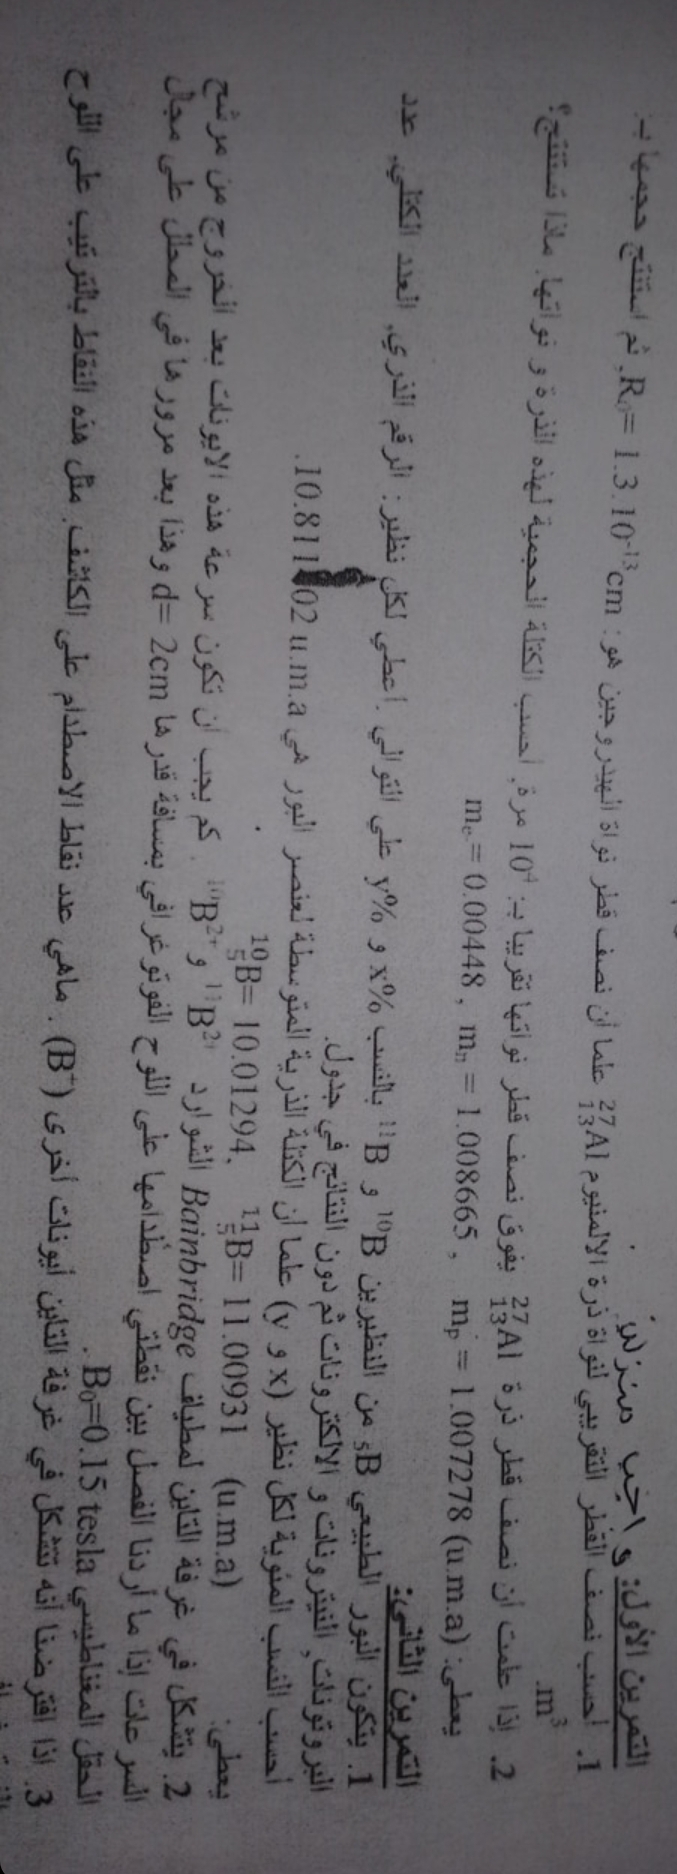 التمرين الأول: واجب منزلي
1. أحسب نصف القطر التقريبي لنواة ذرة الألمنيوم ²⁷₁₃Al علما أن نصف قطر نواة الهيدروجين هو: R₀= 1.3.10⁻¹³cm, ثم استنتج حجمها بـ:
m³.
2. إذا علمت أن نصف قطر ذرة ²⁷₁₃Al يفوق نصف قطر نواتها تقريبا بـ: 10⁴ مرة, أحسب الكتلة الحجمية لهذه الذرة و نواتها. ماذا تستنتج؟
يعطى: mₑ-= 0.00448 , mₙ = 1.008665 , mₚ = 1.007278 (u.m.a)
التمرين الثاني:
1. يتكون البور الطبيعي ₅B من النظيرين ¹⁰B و ¹¹B بالنسب x% و y% على التوالي. اعطي لكل نظير: الرقم الذري, العدد الكتلي, عدد
البروتونات, النيترونات و الالكترونات ثم دون النتائج في جدول.
أحسب النسب المئوية لكل نظير (x و y) علما أن الكتلة الذرية المتوسطة لعنصر البور هي 10.811 02 u.m.a.
يعطى: ¹⁰₅B= 10.01294, ¹¹₅B= 11.00931 (u.m.a)
2. يتشكل في غرفة التاين لمطياف Bainbridge الشوارد ¹¹B²⁺ و ¹⁰B²⁺ . كم يجب ان تكون سرعة هذه الايونات بعد الخروج من مرشح
السرعات إذا ما أردنا الفصل بين نقطتي اصطدامها على اللوح الفوتوغرافي بمسافة قدرها d= 2cm و هذا بعد مرورها في المحلل على مجال
الحقل المغناطيسي B₀=0.15 tesla .
3. اذا افترضنا أنه تتشكل في غرفة التاين أيونات أخرى (B⁺) . ماهي عدد نقاط الاصطدام على الكاشف. مثل هذه النقاط بالترتيب على اللوح